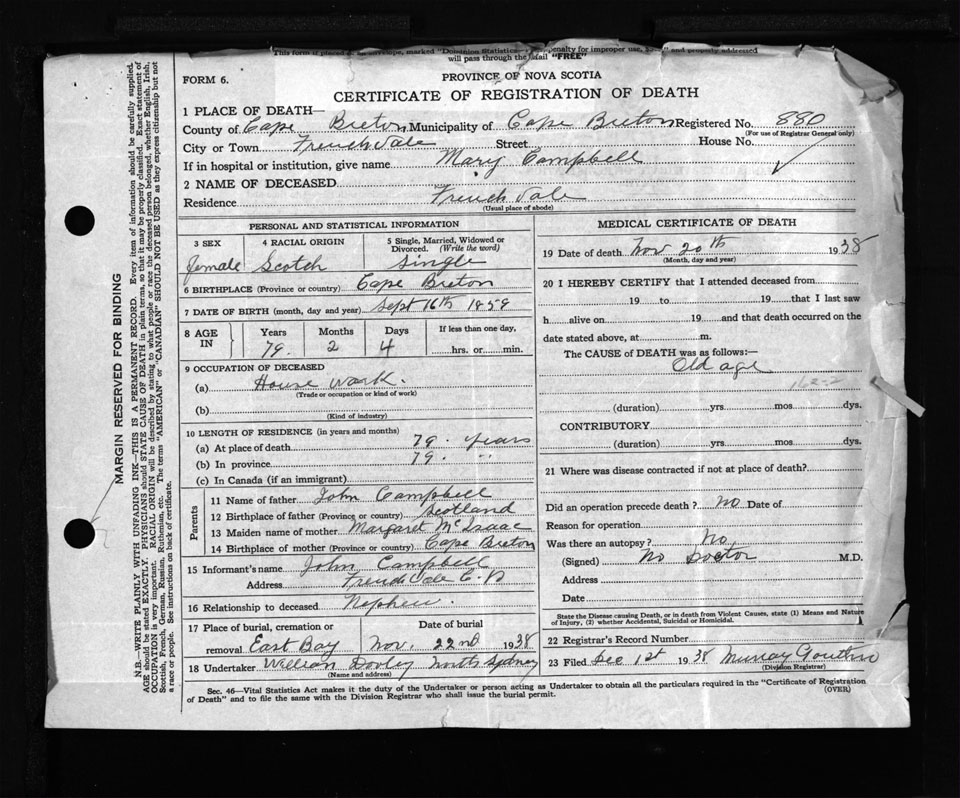 This form if placed in envelope, marked "Dominion Statistics— penalty for improper use, and properly addressed
will pass through the Mail "FREE"
FORM 6.
PROVINCE OF NOVA SCOTIA
CERTIFICATE OF REGISTRATION OF DEATH
1 PLACE OF DEATH—
County of Cape Breton Municipality of Cape Breton Registered No. 880
(For use of Registrar General only)
City or Town French Vale Street House No.
If in hospital or institution, give name Mary Campbell
2 NAME OF DECEASED
Residence French Vale
(Usual place of abode)
PERSONAL AND STATISTICAL INFORMATION
3 SEX 4 RACIAL ORIGIN 5 Single, Married, Widowed or Divorced. (Write the word)
female Scotch Single
6 BIRTHPLACE (Province or country) Cape Breton
7 DATE OF BIRTH (month, day and year) Sept 16th 1859
8 AGE IN Years Months Days If less than one day,
79. 2 4 hrs. or min.
9 OCCUPATION OF DECEASED
(a) House Work.
(Trade or occupation or kind of work)
(b)
(Kind of industry)
10 LENGTH OF RESIDENCE (in years and months)
(a) At place of death 79. years
(b) In province 79. "
(c) In Canada (if an immigrant)
Parents
11 Name of father John Campbell
12 Birthplace of father (Province or country) Scotland
13 Maiden name of mother Margaret McIsaac
14 Birthplace of mother (Province or country) Cape Breton
15 Informant's name John Campbell
Address French Vale C.B
16 Relationship to deceased Nephew.
17 Place of burial, cremation or removal Date of burial
East Bay Nov. 22nd 1938
18 Undertaker William Dooley North Sydney
(Name and address)
MEDICAL CERTIFICATE OF DEATH
19 Date of death Nov 20th 1938
(Month, day and year)
20 I HEREBY CERTIFY that I attended deceased from
19 to 19 that I last saw
h alive on 19 and that death occurred on the
date stated above, at m.
The CAUSE of DEATH was as follows:—
Old age
162-2
(duration) yrs. mos. dys.
CONTRIBUTORY
(duration) yrs. mos. dys.
21 Where was disease contracted if not at place of death?
Did an operation precede death? No Date of
Reason for operation
Was there an autopsy? No
(Signed) No Doctor M.D.
Address
Date
State the Disease causing Death, or in death from Violent Causes, state (1) Means and Nature
of Injury, (2) whether Accidental, Suicidal or Homicidal.
22 Registrar's Record Number
23 Filed Dec 1st 1938 Murray
(Division Registrar)
Sec. 46—Vital Statistics Act makes it the duty of the Undertaker or person acting as Undertaker to obtain all the particulars required in the "Certificate of Registration
of Death" and to file the same with the Division Registrar who shall issue the burial permit. (OVER)
MARGIN RESERVED FOR BINDING
N.B.—WRITE PLAINLY WITH UNFADING INK—THIS IS A PERMANENT RECORD. Every item of information should be carefully supplied.
AGE should be stated EXACTLY. PHYSICIANS should STATE CAUSE OF DEATH in plain terms, so that it may be properly classified. Exact statement of
OCCUPATION is very important. RACIAL ORIGIN will be described by stating to what people or race the deceased person belonged, whether English, Irish,
Scottish, French, German, Russian, Ruthenian, etc. The terms "AMERICAN" or "CANADIAN" SHOULD NOT BE USED as they express citizenship but not
a race or people. See instructions on back of certificate.